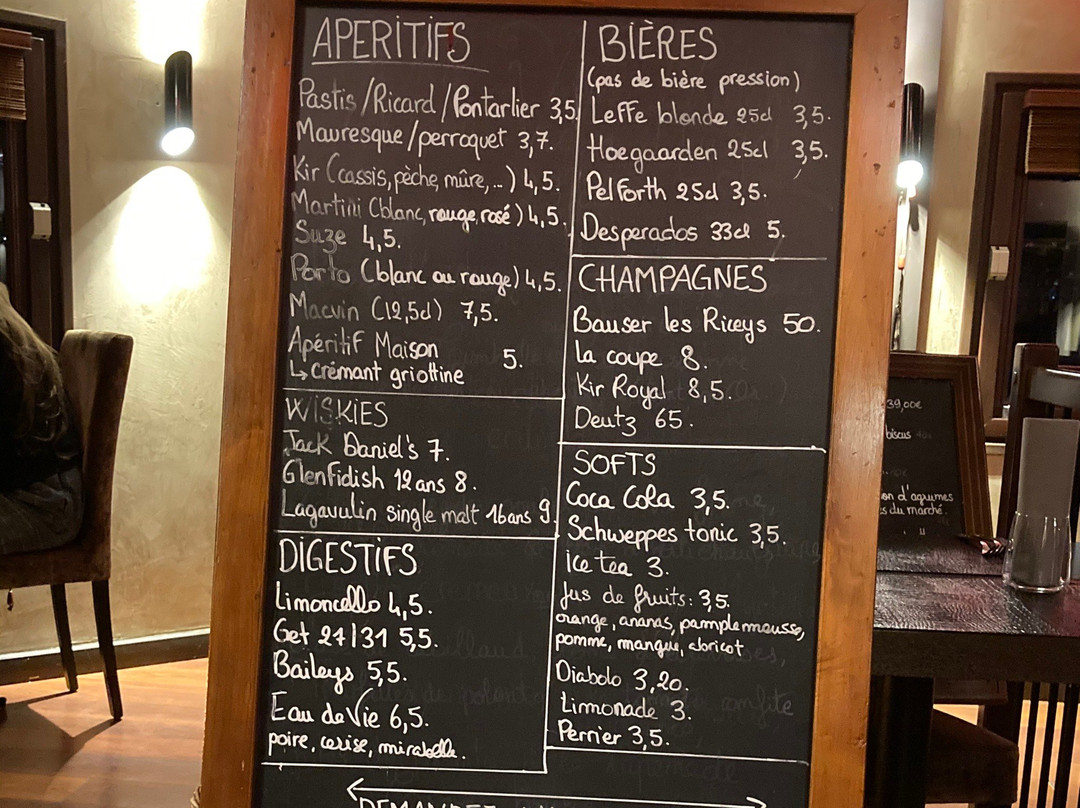 APERITIFS
Pastis/Ricard/Pontarlier 3,5
Mauresque/perroquet 3,7.
Kir (cassis, pèche, mûre,...) 4,5.
Martini (blanc, rouge, rosé) 4,5.
Suze 4,5.
Porto (blanc ou rouge) 4,5.
Macvin (12,5cl) 7,5.
Apéritif Maison 5.
↳ crémant griottine
WISKIES
Jack Daniel's 7.
Glenfidish 12 ans 8.
Lagavulin single malt 16ans 9
DIGESTIFS
Limoncello 4,5.
Get 27/31 5,5.
Baileys 5,5.
Eau de Vie 6,5.
poire, cerise, mirabelle.
BIÈRES
(pas de bière pression)
Leffe blonde 25cl 3,5.
Hoegaarden 25cl 3,5.
Pelforth 25cl 3,5.
Desperados 33cl 5.
CHAMPAGNES
Bauser les Riceys 50.
la coupe 8.
Kir Royal 8,5.
Deutz 65.
SOFTS
Coca Cola 3,5.
Schweppes tonic 3,5.
ice tea 3.
Jus de fruits: 3,5.
orange, ananas, pamplemousse,
pomme, mangue, abricot
Diabolo 3,20.
Limonade 3.
Perrier 3,5.
39,00€
biscus
on d'agrumes
s du marché.